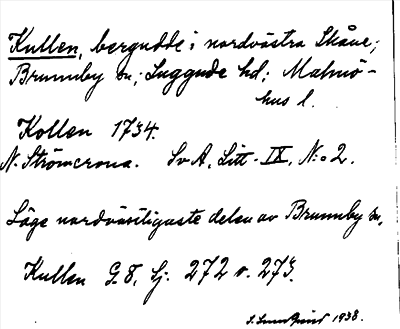 Kullen, bergudde i nordvästra Skåne;
Brunnby sn; Luggude hd; Malmö-
hus l.
Kollen 1734.
N. Strömcrona. Sv A. Litt. IX, N:o 2.
Läge nordvästligaste delen av Brunnby sn.
Kullen G.8, Sj. 272 o. 273.
1938.